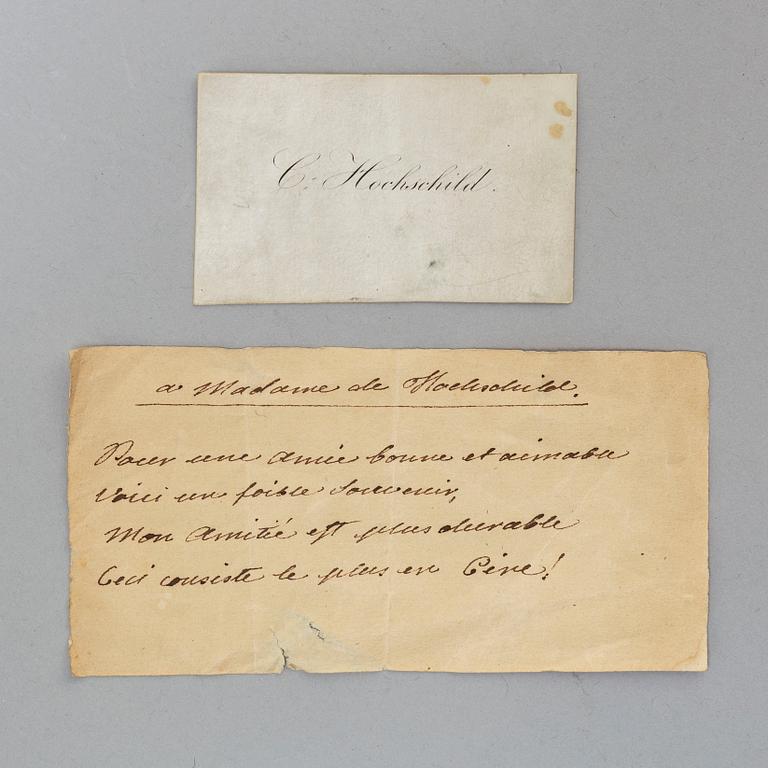 C: Hochschild.
a Madame de Hochschild.
Pour une Amie bonne et aimable
Voici un foible Souvenir,
Mon Amitié est plus durable
Ceci consiste le plus en Cire!